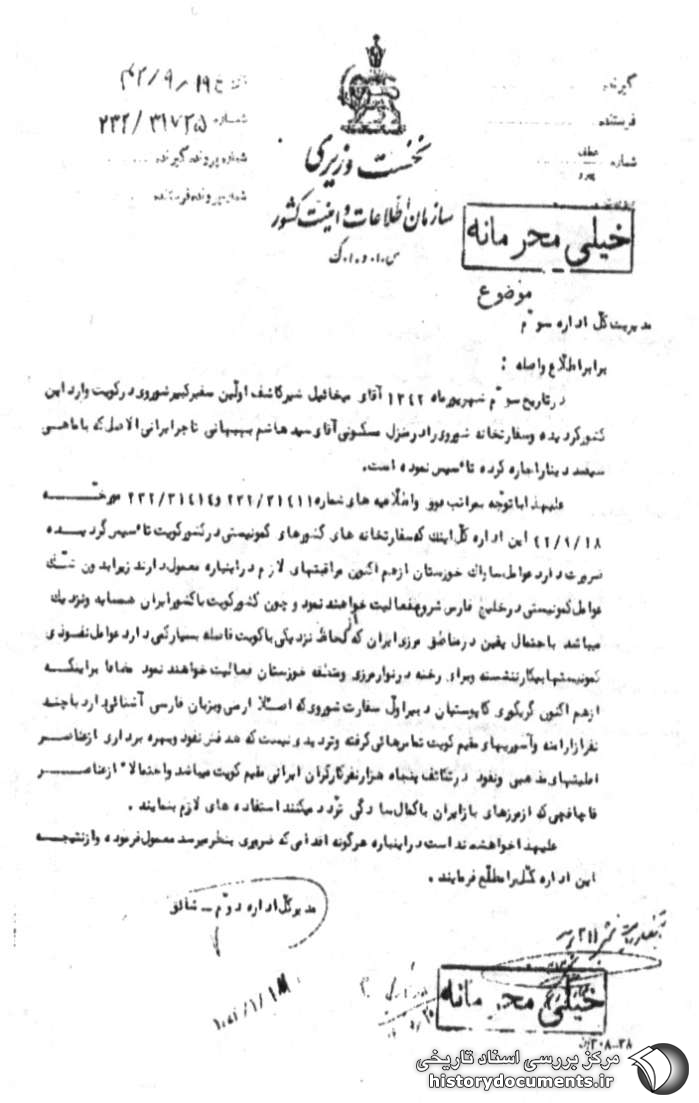 گیرنده
فرستنده
شماره عطف پیرو
تاریخ ۴۲/۹/۱۹
شماره ۲۳۲/۳۱۷۲۵
شماره پرونده گیرنده
شماره پرونده فرستنده
نخست وزیری
سازمان اطلاعات و امنیت کشور
س.ا.و.ا.ک
خیلی محرمانه
موضوع
مدیریت کل اداره سوم
برابر اطلاع واصله :
در تاریخ سوم شهریور ماه ۱۳۴۲ آقای میخائیل شیرکاشف اولین سفیر کبیر شوروی در کویت وارد این
کشور گردیده و سفارتخانه شوروی را در منزل مسکونی آقای سید هاشم بهبهانی تاجر ایرانی الاصل که با ماهی
سیصد دینار اجاره کرده تأسیس نموده است.
علیهذا با توجه بمراتب فوق و اطلاعیه های شماره ۲۳۲/۳۱۴۱۱ و ۲۳۲/۳۱۴۱۴ مورخه
۴۲/۹/۱۸ این اداره کل اینک که سفارتخانه های کشورهای کمونیستی در کشور کویت تأسیس گردیده
ضرورت دارد عوامل ساواک خوزستان از هم اکنون مراقبتهای لازم در اینباره معمول دارند زیرا بدون شک
عوامل کمونیستی در خلیج فارس شروع بفعالیت خواهند نمود و چون کشور کویت با کشور ایران همسایه و نزدیک
میباشد با احتمال یقین در مناطق مرزی ایران که از لحاظ نزدیکی با کویت فاصله بسیار کمی دارد عوامل نفوذی
کمونیستها بیکار ننشسته و برای رخنه در نوار مرزی و منطقه خوزستان فعالیت خواهند نمود مضافا براینکه
از هم اکنون گریگوری کاپوستیان دبیر اول سفارت شوروی که اصلا ارمنی و بزبان فارسی آشنائی دارد با چند
نفر از ارامنه و آسوریهای مقیم کویت تماس هائی گرفته و تردیدی نیست که هدفش نفوذ و بهره برداری از عناصر
اقلیتهای مذهبی و نفوذ در شکاف پنجاه هزار نفر کارگران ایرانی مقیم کویت میباشد و احتمالا" از عناصر
قاچاقچی که از مرزهای باز ایران با کمال سادگی تردد میکنند استفاده های لازم بنمایند .
علیهذا خواهشمند است در اینباره هرگونه اقدامی که ضروری بنظر میرسد معمول فرموده و از نتیجه
این اداره کل را مطلع فرمایند .
مدیر کل اداره دوم - شائق
خیلی محرمانه
مرکز بررسی اسناد تاریخی
historydocuments.ir